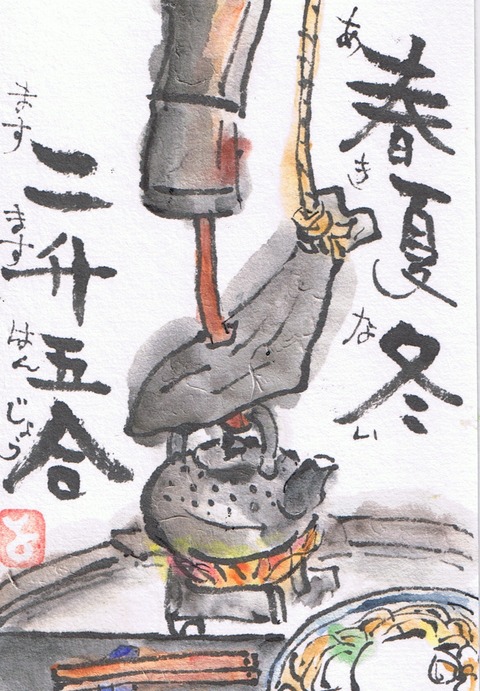 春夏冬
あきない
二升五合
ますますはんじょう
と